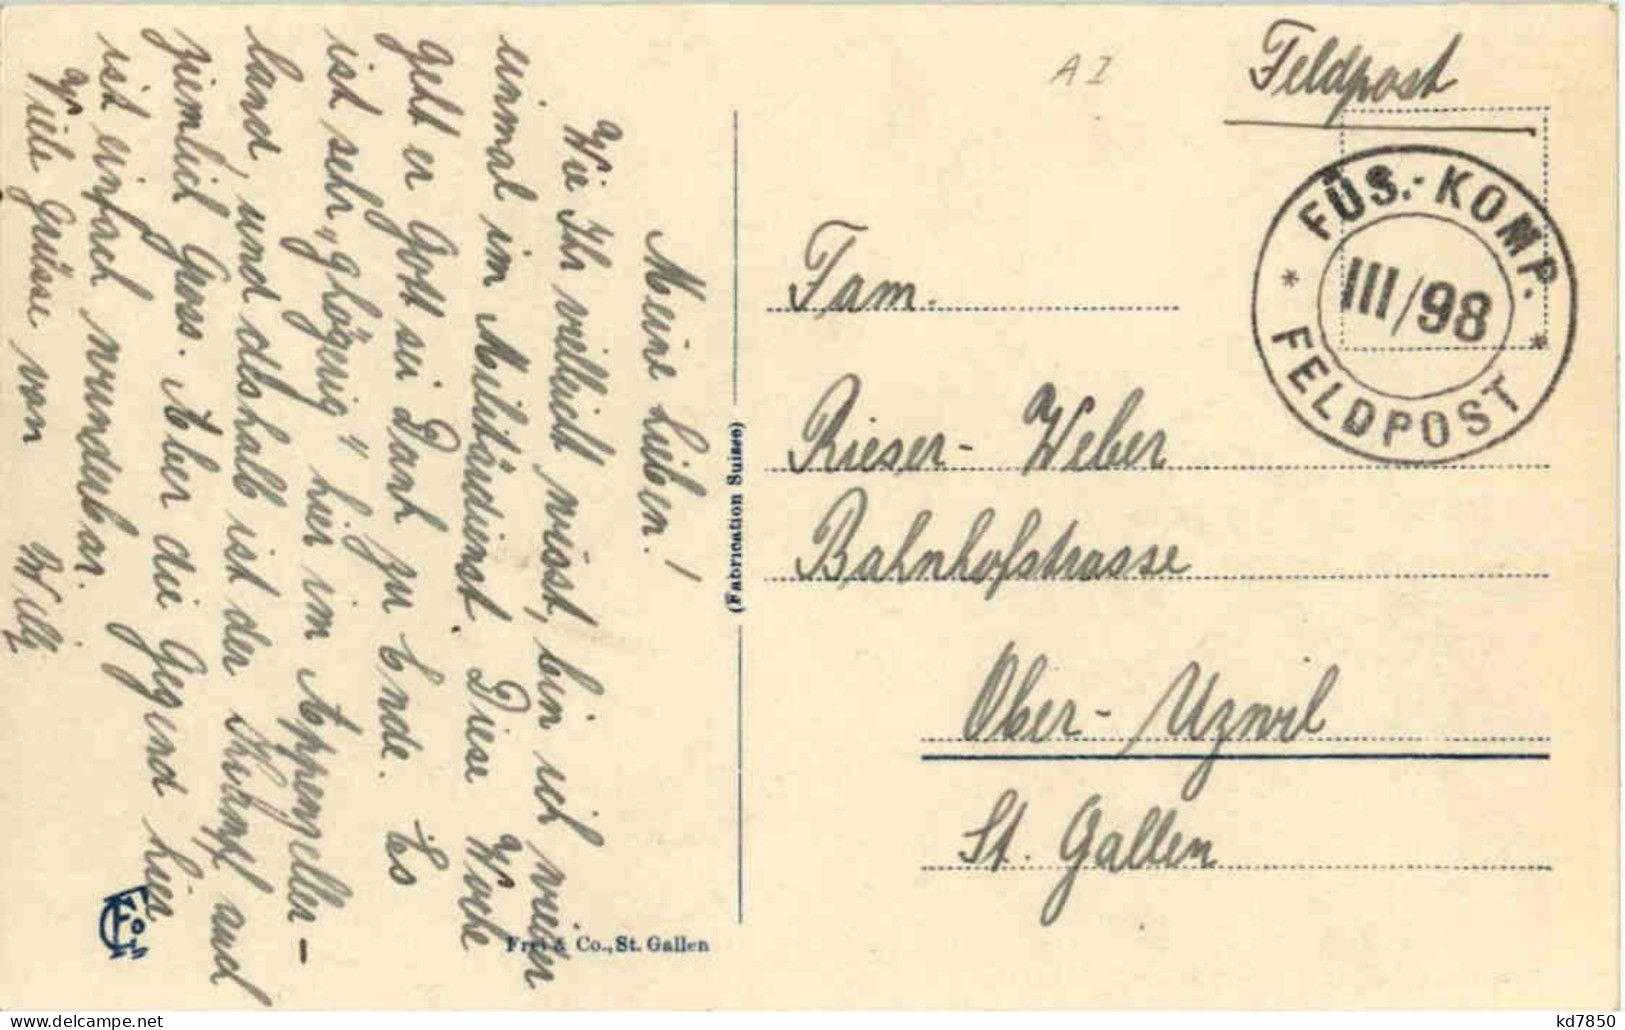 Meine Lieben!
Wie Ihr vielleicht wisst, bin ich wieder
einmal im Militärdienst. Diese Woche
geht er Gott sei Dank zu Ende. Es
ist sehr „ hier im Appenzeller-
land, und deshalb ist der auch
ziemlich Gross. Aber die Gegend hier
ist einfach wunderbar.
Viele Grüsse von Willy
(Fabrication Suisse)
Frei & Co., St. Gallen
FCo
A I
Feldpost
FÜS.-KOMP.
III/98
* FELDPOST *
Fam.
Rieser- Weber
Bahnhofstrasse
Ober- Uzwil
St. Gallen
kd7850